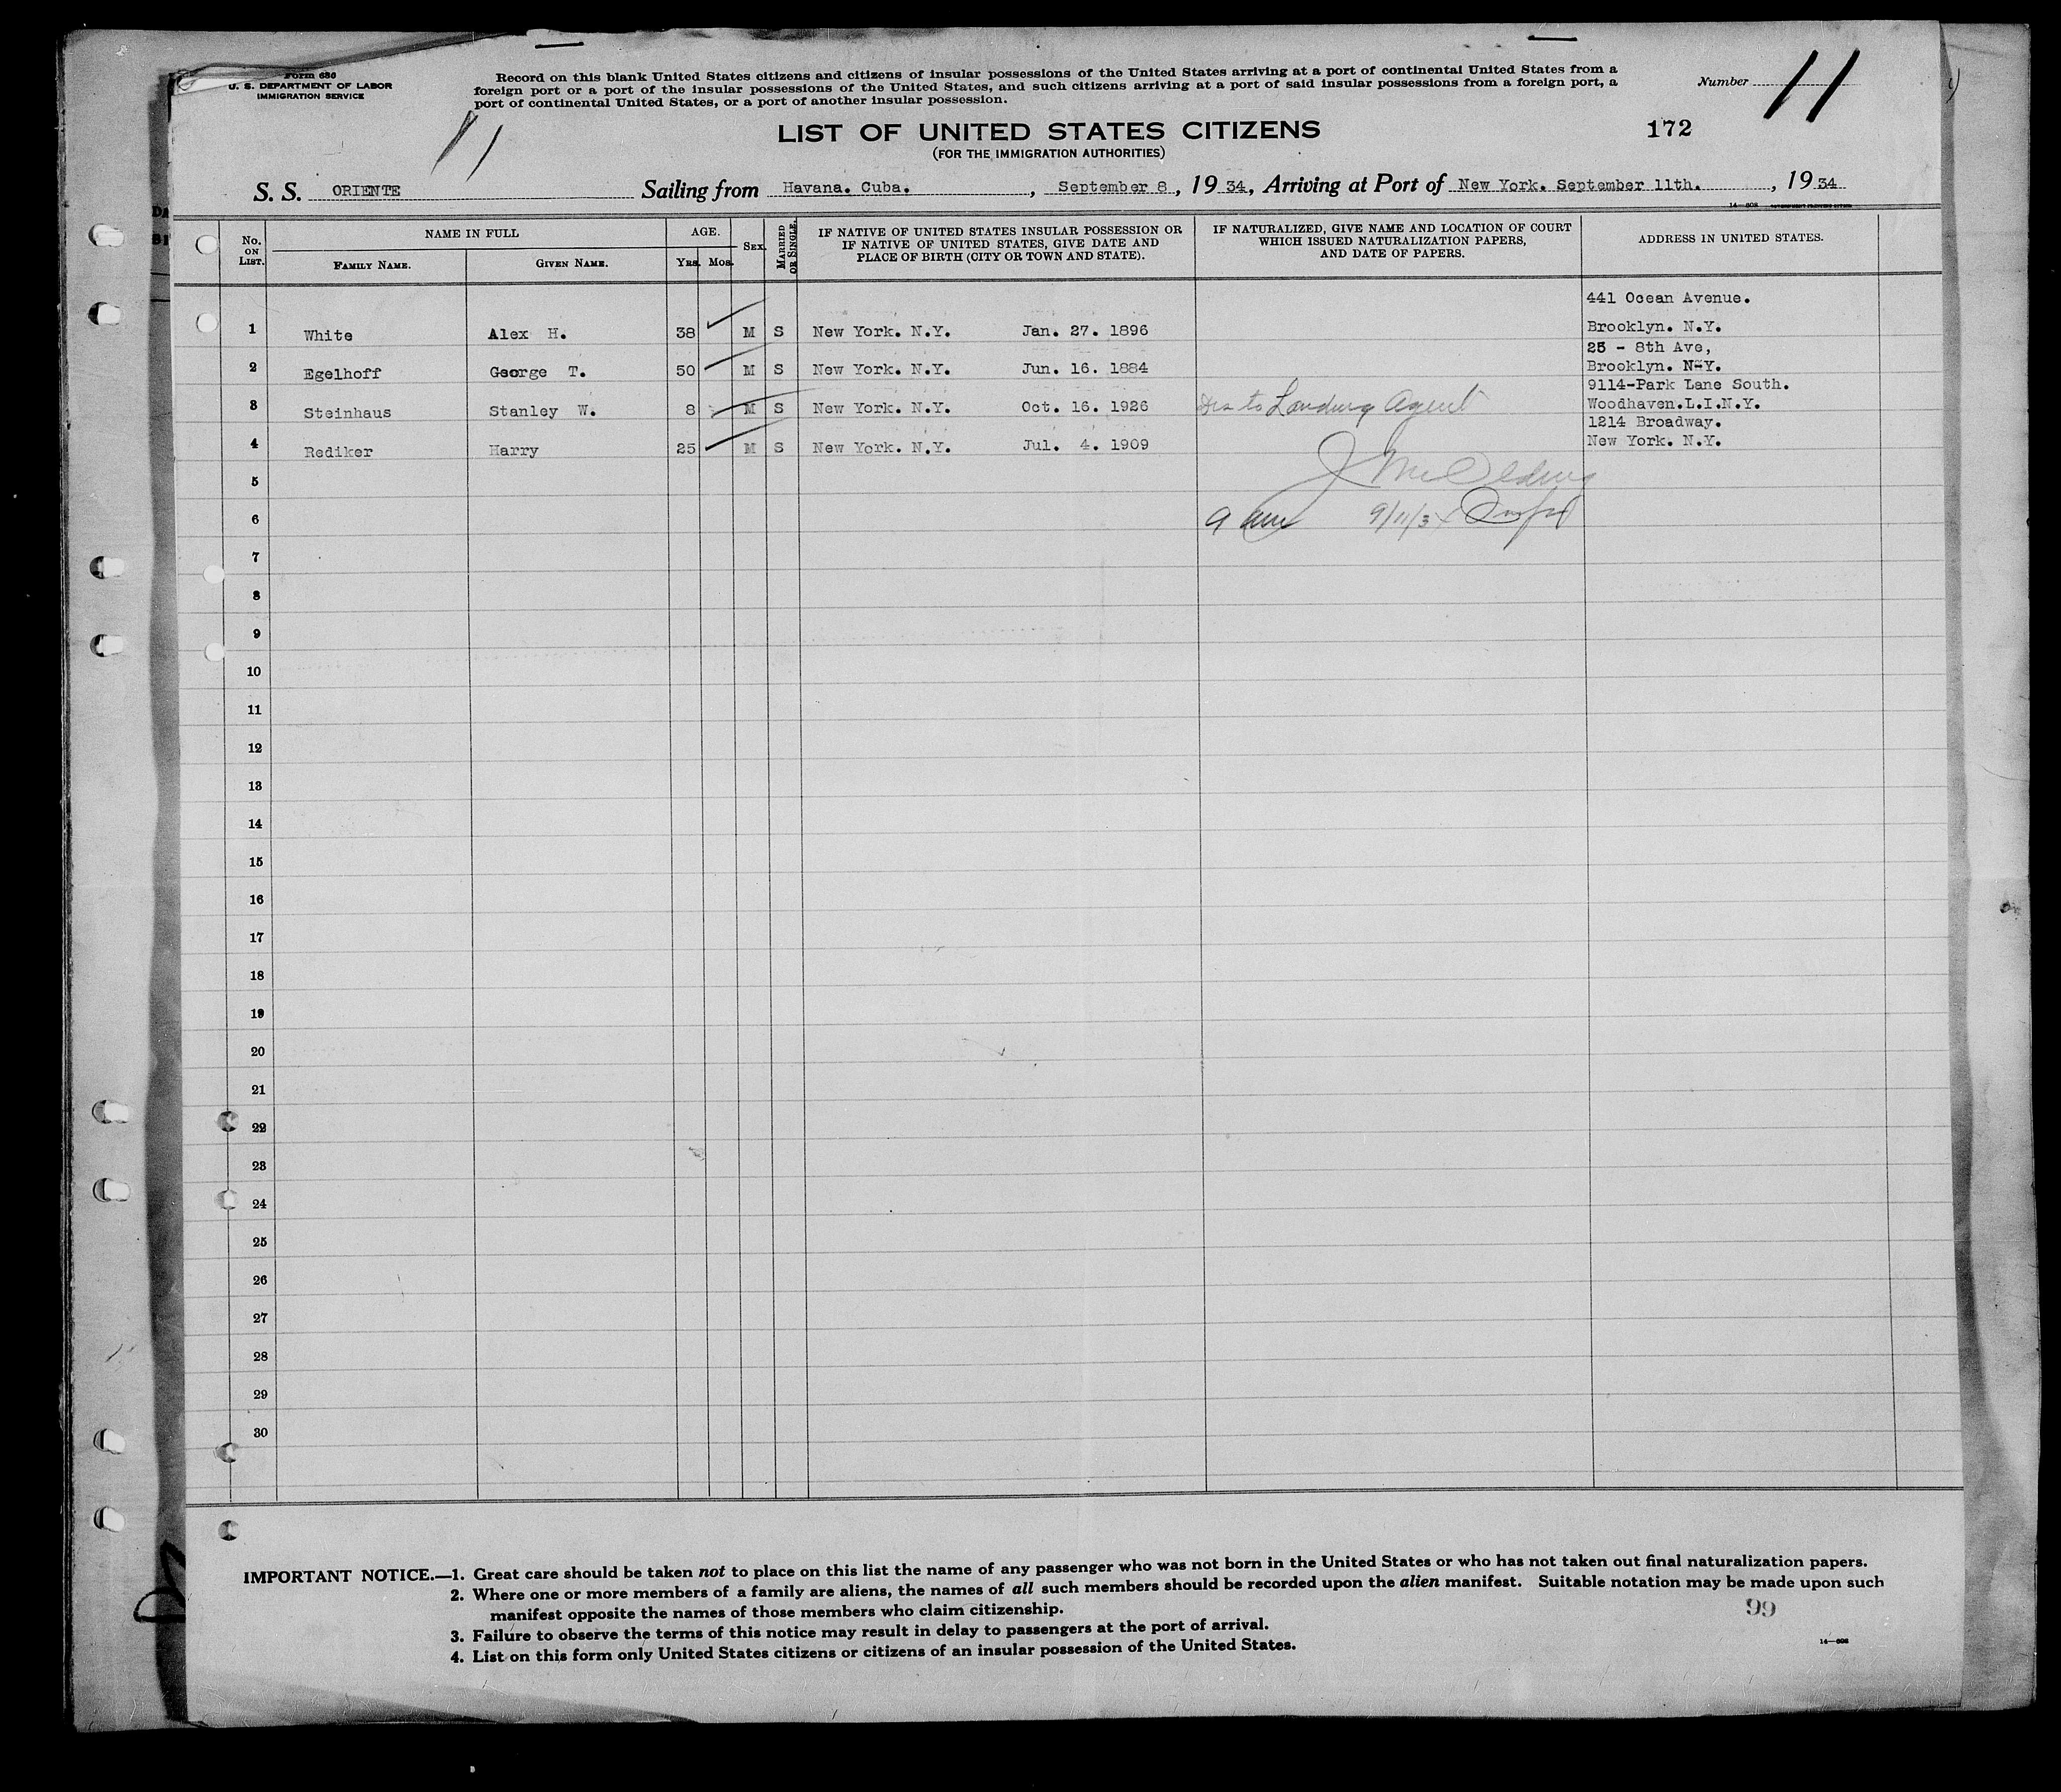 Form 686
U. S. DEPARTMENT OF LABOR
IMMIGRATION SERVICE
Record on this blank United States citizens and citizens of insular possessions of the United States arriving at a port of continental United States from a
foreign port or a port of the insular possessions of the United States, and such citizens arriving at a port of said insular possessions from a foreign port, a
port of continental United States, or a port of another insular possession.
Number 11
11
LIST OF UNITED STATES CITIZENS
172
(FOR THE IMMIGRATION AUTHORITIES)
S. S. ORIENTE Sailing from Havana. Cuba. , September 8 , 19 34, Arriving at Port of New York. September 11th. , 19 34
No. ON LIST.
NAME IN FULL
FAMILY NAME. GIVEN NAME.
AGE.
YRS. MOS.
SEX.
MARRIED OR SINGLE.
IF NATIVE OF UNITED STATES INSULAR POSSESSION OR
IF NATIVE OF UNITED STATES, GIVE DATE AND
PLACE OF BIRTH (CITY OR TOWN AND STATE).
IF NATURALIZED, GIVE NAME AND LOCATION OF COURT
WHICH ISSUED NATURALIZATION PAPERS,
AND DATE OF PAPERS.
ADDRESS IN UNITED STATES.
441 Ocean Avenue.
1 White Alex H. 38 M S New York. N.Y. Jan. 27. 1896 Brooklyn. N.Y.
25 - 8th Ave,
2 Egelhoff George T. 50 M S New York. N.Y. Jun. 16. 1884 Brooklyn. N-Y.
9114-Park Lane South.
3 Steinhaus Stanley W. 8 M S New York. N.Y. Oct. 16. 1926 to Landing Agent Woodhaven.L.I.N.Y.
1214 Broadway.
4 Rediker Harry 25 M S New York. N.Y. Jul. 4. 1909 New York. N.Y.
5
6 9/11/34
7
8
9
10
11
12
13
14
15
16
17
18
19
20
21
22
23
24
25
26
27
28
29
30
IMPORTANT NOTICE.—1. Great care should be taken not to place on this list the name of any passenger who was not born in the United States or who has not taken out final naturalization papers.
2. Where one or more members of a family are aliens, the names of all such members should be recorded upon the alien manifest. Suitable notation may be made upon such
manifest opposite the names of those members who claim citizenship.
99
3. Failure to observe the terms of this notice may result in delay to passengers at the port of arrival.
4. List on this form only United States citizens or citizens of an insular possession of the United States.